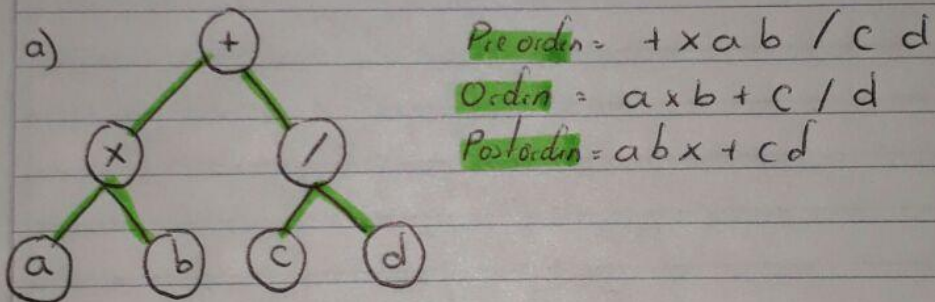 a)
+
x /
a b c d
Preorden = + x a b / c d
Orden = a x b + c / d
Postorden = a b x + c d